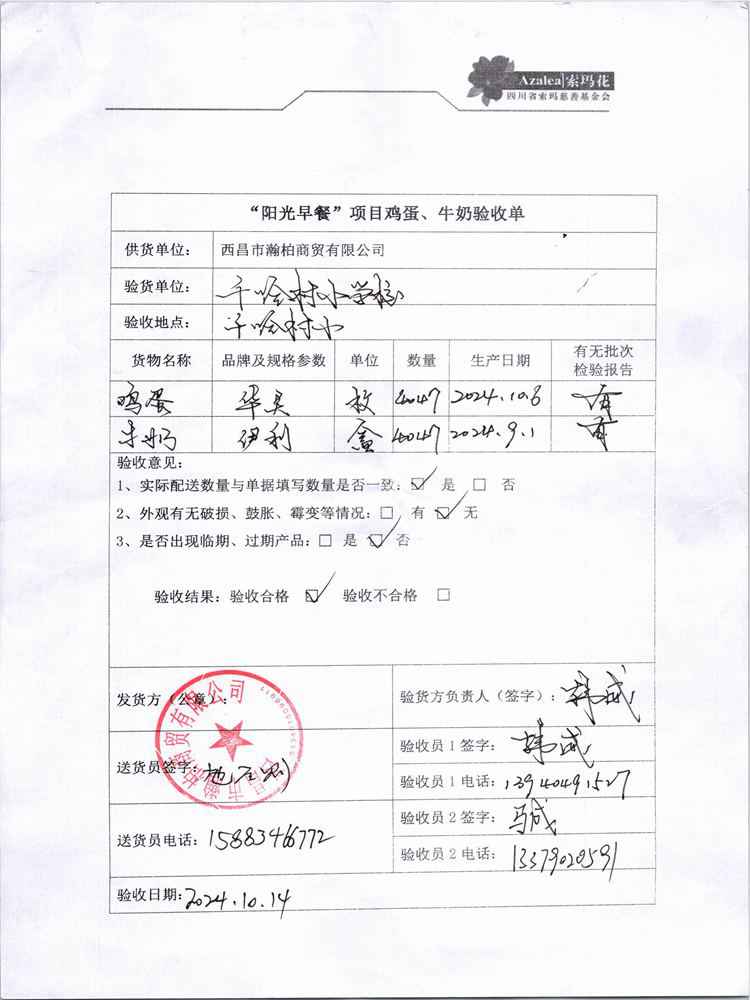 Azalea 索玛花
四川省索玛慈善基金会
“阳光早餐”项目鸡蛋、牛奶验收单
供货单位： 西昌市瀚柏商贸有限公司
验货单位： 干哈村小学校
验收地点： 干哈村小
货物名称 品牌及规格参数 单位 数量 生产日期 有无批次
检验报告
鸡蛋 华昊 枚 4047 2024.10.8 有
牛奶 伊利 盒 4047 2024.9.1 有
验收意见：
1、实际配送数量与单据填写数量是否一致：☑ 是 □ 否
2、外观有无破损、鼓胀、霉变等情况：□ 有 ☑ 无
3、是否出现临期、过期产品：□ 是 ☑ 否
验收结果：验收合格 ☑ 验收不合格 □
发货方（公章）：
验货方负责人（签字）：韩成
送货员签字：
验收员 1 签字：韩成
验收员 1 电话：13940491527
送货员电话：15883466772
验收员 2 签字：马成
验收员 2 电话：13379020591
验收日期：2024.10.14